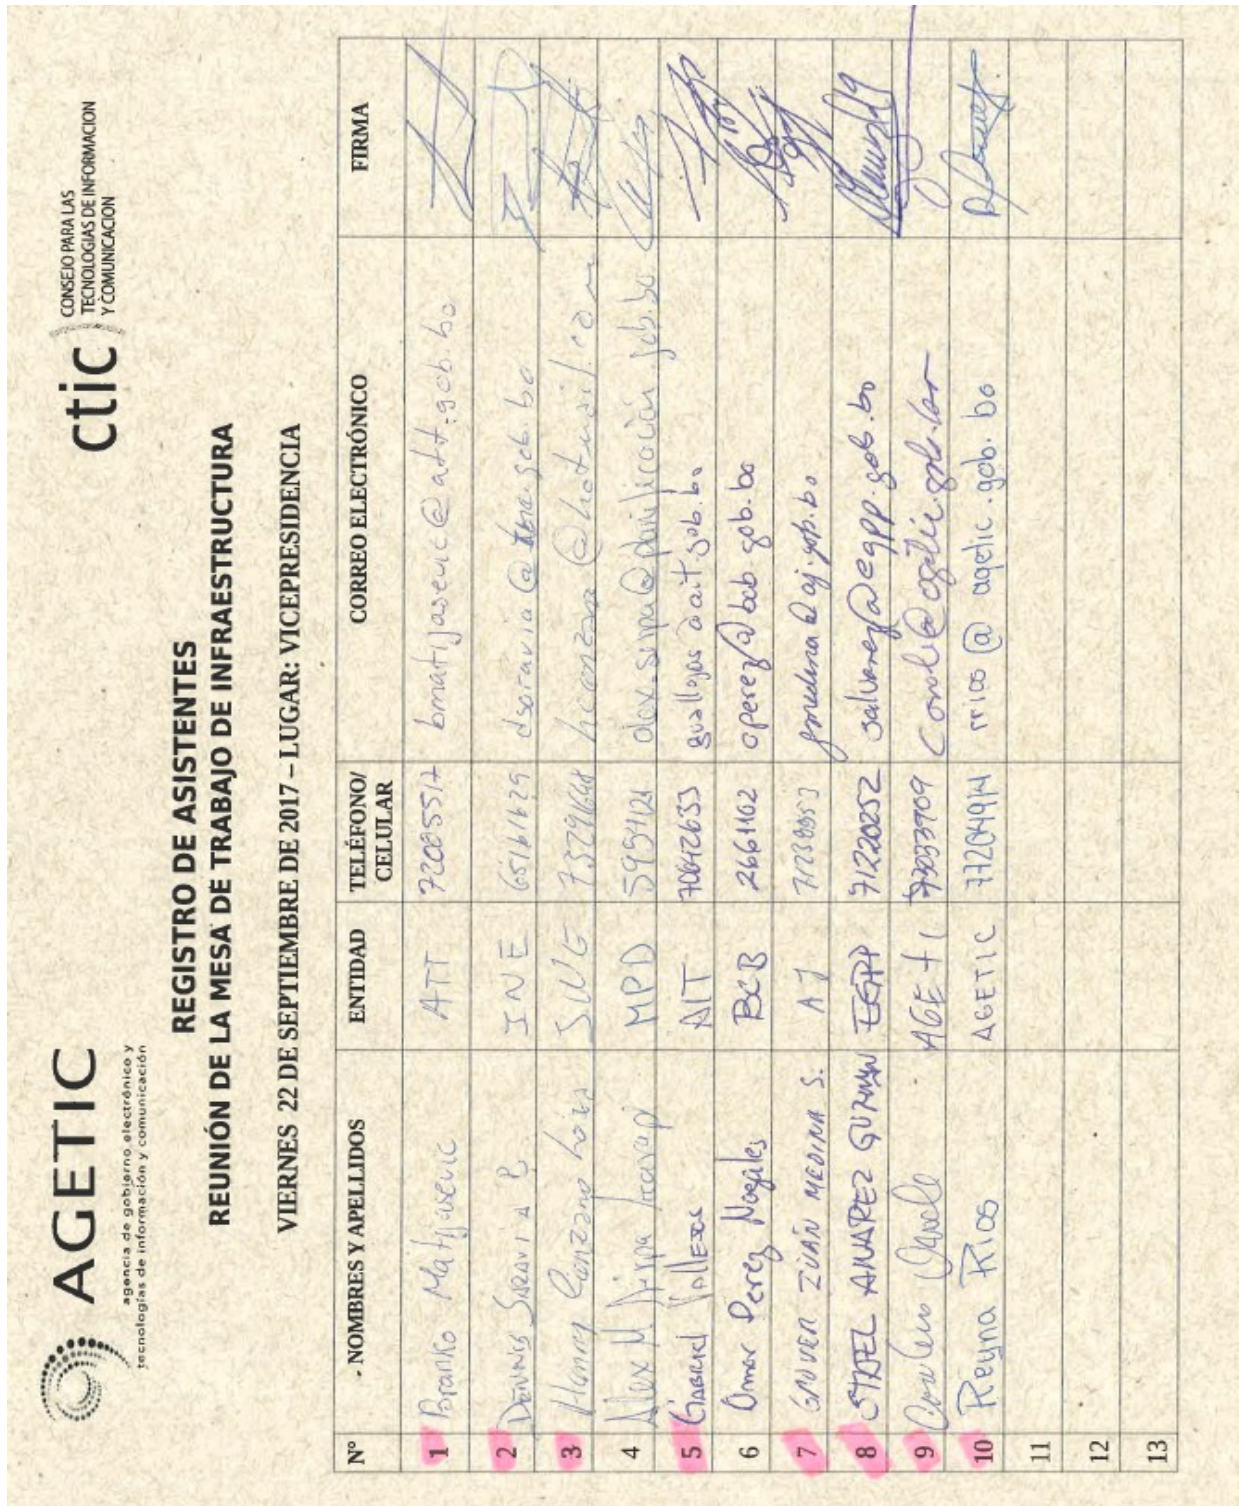 AGETIC
agencia de gobierno electrónico y
tecnologías de información y comunicación
ctic
CONSEJO PARA LAS
TECNOLOGIAS DE INFORMACION
Y COMUNICACION
REGISTRO DE ASISTENTES
REUNIÓN DE LA MESA DE TRABAJO DE INFRAESTRUCTURA
VIERNES 22 DE SEPTIEMBRE DE 2017 – LUGAR: VICEPRESIDENCIA
Nº - NOMBRES Y APELLIDOS ENTIDAD TELÉFONO/ CELULAR CORREO ELECTRÓNICO FIRMA
1 Branko Matijasevic ATT 72085517 bmatijasevic@att.gob.bo
2 Dennis Saravia P. INE 65161629 dsaravia@ine.gob.bo
3 Henry @hotmail.com
4 Alex M. Sirpa MPD alex.sirpa@planificación.gob.bo
5 GABRIEL VALLEJOS AIT 70642633 gvallejos@ait.gob.bo
6 Omar Perez Nogales BCB 2661102 operez@bcb.gob.bo
7 GROVER IVÁN MEDINA S. AJ gmedina@aj.gob.bo
8 ALVAREZ GUZMAN EGPP 71220252 salvarez@egpp.gob.bo
9
10 Reyna Rios AGETIC 77204914 rrios@agetic.gob.bo
11
12
13